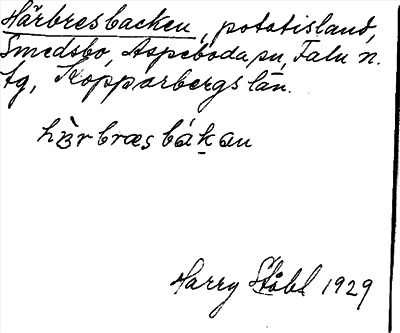 Härbresbacken, potatisland,
Smedsbo, Aspeboda sn, Falu n.
tg, Kopparbergs län.
hä̀rbræsbákan
Harry Ståhl 1929